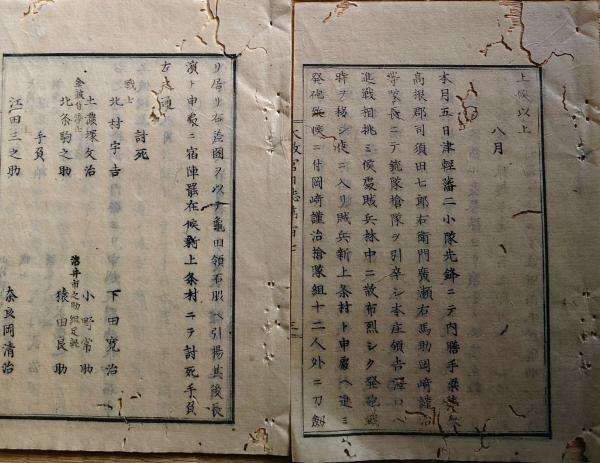 上候以上
八月
本月五日津軽藩二小隊先鋒ニテ内膳手
高根郡司須田七郎右衛門廣瀬右馬助岡崎謹治
長ニテ銃隊槍隊ヲ引卒シ本庄領吉口ヘ
進戦相挑ミ候處賊兵林中ニ散布烈シク發砲
時ヲ移シ夜ニ入リ賊兵新上条村ト申處ヘ進ミ
發砲候ニ付岡崎謹治槍隊組十二人外ニ刀劍
太政官日誌第百七
三
リ居リ右ヲ以テ亀田領石脇ヘ引揚其後長
濱ト申處ニ宿陣罷在候新上条村ニテ討死手負
左ノ通
討死
戦士
北村宇吉
下田寛治
土濃塚文治
小野常助
北条駒之助
猿田良助
手負
江田三之助
奈良岡清治